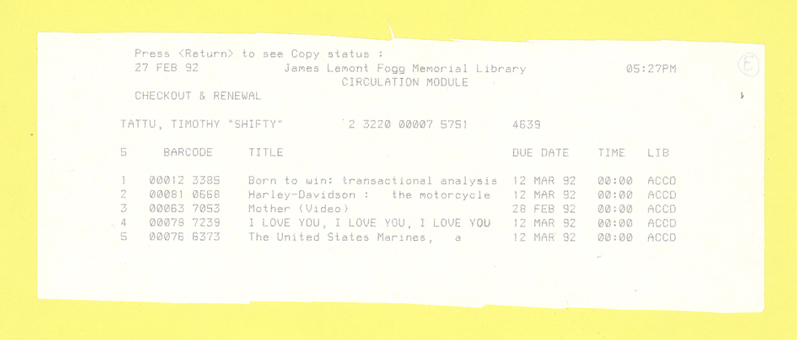 Press <Return> to see Copy status :
27 FEB 92 James Lemont Fogg Memorial Library 05:27PM
CIRCULATION MODULE
E
CHECKOUT & RENEWAL
TATTU, TIMOTHY "SHIFTY" 2 3220 00007 5751 4639
5 BARCODE TITLE DUE DATE TIME LIB
1 00012 3385 Born to win: transactional analysis 12 MAR 92 00:00 ACCD
2 00081 0668 Harley-Davidson : the motorcycle 12 MAR 92 00:00 ACCD
3 00063 7053 Mother (Video) 28 FEB 92 00:00 ACCD
4 00078 7239 I LOVE YOU, I LOVE YOU, I LOVE YOU 12 MAR 92 00:00 ACCD
5 00076 6373 The United States Marines, a 12 MAR 92 00:00 ACCD